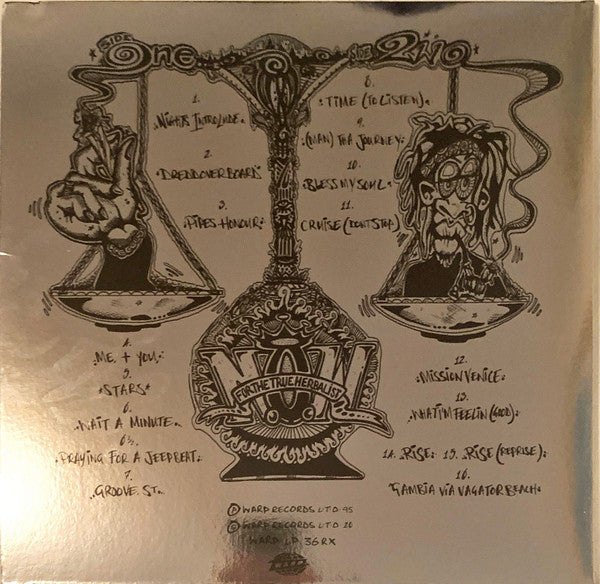 SIDE One
2wo
1.
Nights Introlude
2.
DREDDOVERBOARD
3.
PIPES HONOUR
4.
ME + YOU
5.
STARS
6.
WAIT A MINUTE
6½.
PRAYING FOR A JEEPBEAT
7.
GROOVE ST.
8.
TIME (TO LISTEN)
9.
(MAN) THA JOURNEY
10.
BLESS MY SOUL
11.
CRUISE (DONT STOP)
N.O.W
FOR THE TRUE HERBALIST
12.
MISSION VENICE
13.
WHAT I'M FEELIN (GOOD)
14. RISE 15. RISE (REPRISE)
16.
GAMBIA VIA VAGATOR BEACH
Ⓟ WARP RECORDS LTD 95
© WARP RECORDS LTD 20
WARP LP 36RX